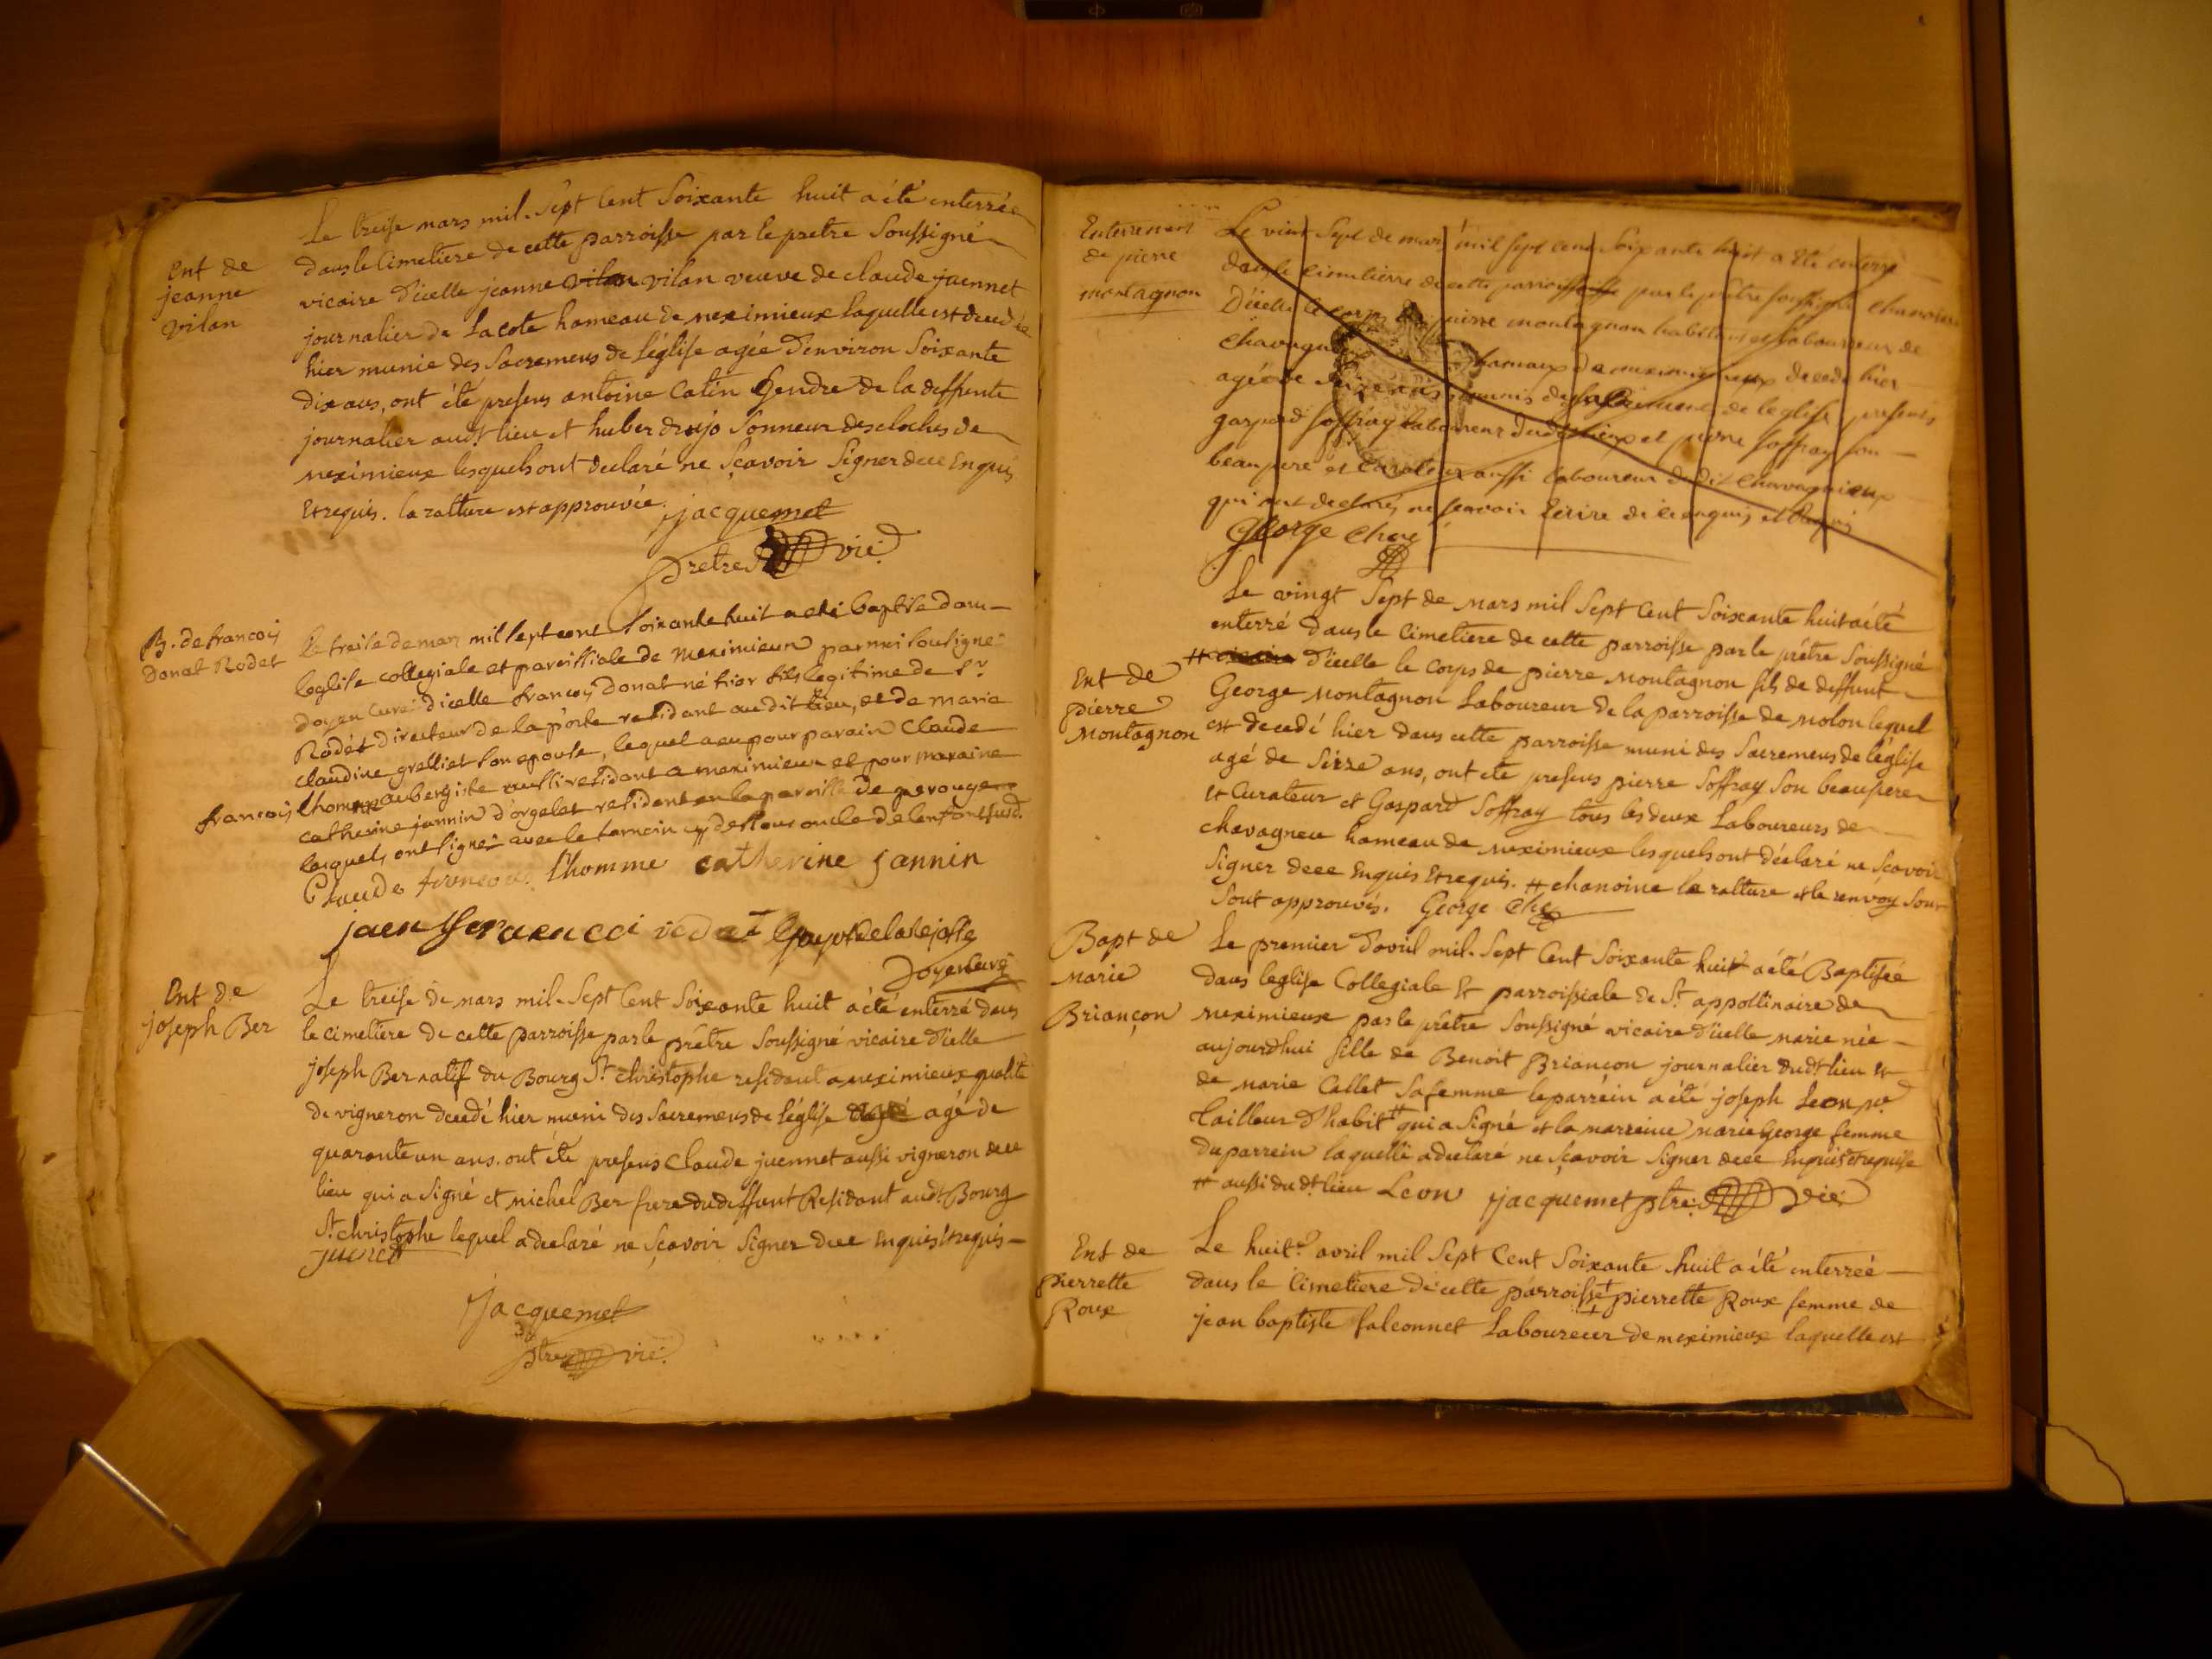 Ent de
jeanne
vilan
Le treise mars mil. Sept Cent Soixante huit a été enterrée
dans le Cimetiere de cette parroisse par le pretre Soussigné
vicaire d'icelle jeanne vilan vilan veuve de claude juennet
journalier de La cote hameau de meximieux laquelle est decedée
hier munie des Sacremens de l'église agée d'environ Soixante
dix ans, ont été presens antoine Catin Gendre de la deffunte
journalier audt. lieu et huber drojo Sonneur des cloches de
meximieux lesquels ont declaré ne Sçavoir Signer de ce Enquis
Et requis. la ratture est approuvée.
jacquemet
pretre vic.
B. de francois
donat Rodet
le treise de mars mil sept cent soixante huit a eté baptisé dans
l'eglise collegiale et paroissiale de meximieux par moi sousigné
doyen curé d'icelle francois donat né hier fils legitime de Sr
Rodet directeur de la poste residant au dit lieu, et de marie
claudine grelliet son epouse, lequel a eu pour parain Claude
francois lhomme aubergiste aussi residant a meximieux et pour maraine
catherine jannin d'orgelet residant en la paroisse de perouge
lesquels ont signé avec le temoin cy dessous oncle de l'enfant susd.
Claude francois lhomme catherine jannin
doyen curé
Ent de
joseph Ber
Le treise de mars mil. Sept Cent Soixante huit a été enterré dans
le cimetiere de cette parroisse par le prêtre Soussigné vicaire d'icelle
joseph Ber natif du Bourg St. christophe residant a meximieux qualité
de vigneron decedé hier muni des Sacremens de l'église agé de
quarante un ans. ont été presens Claude juennet aussi vigneron
lieu qui a Signé et michel Ber frere du deffunt Residant audt. Bourg
St. christophe lequel a declaré ne Sçavoir Signer de ce Enquis Et requis
juenet
jacquemet
ptre vic.
Enterrement
de pierre
montagnon
Le vint Sept de mars mil sept cent soixante huit a eté enterré
dans le cimetierre de cette parroisse par le prêtre soussigné chanoine
D'icelle le corps de pierre montagnon habitant et laboureur de
chavagn hamaux de meximieux decedé hier
agé de ans munis des sacrements de leglise presents
gaspard soffray laboureur dudt lieux et pierre soffray son
beau pere et curateur aussi laboureur du dit chavagnieux
qui ont declarés ne scavoir Ecrire de ce enquis et requis
George Chne
Ent de
pierre
Montagnon
Le vingt Sept de mars mil Sept Cent Soixante huit a été
enterré dans le Cimetiere de cette parroisse par le prêtre Soussigné
# vicaire d'icelle le corps de pierre Montagnon fils de deffunt
George Montagnon Laboureur de la parroisse de molon lequel
est decedé hier dans cette parroisse muni des Sacremens de l'église
agé de Seize ans, ont été presens pierre Soffray Son beaupere
et Curateur et Gaspard Soffray tous les deux Laboureurs de
chavagneu hameau de meximieux lesquels ont déclaré ne Sçavoir
Signer de ce Enquis Et requis. # chanoine la ratture et le renvoy Sont
Sont approuvés. George Chne
Bapt de
Marie
Briançon
Le premier d'avril mil. Sept Cent Soixante huit a été Baptisée
dans leglise Collegiale Et parroissiale de St. appollinaire de
meximieux par le prêtre Soussigné vicaire d'icelle marie née
aujourdhui fille de Benoit Briancon journalier dudt lieu Et
de marie Callet Sa femme le parrein a été joseph Leon
tailleur d'habit # qui a Signé et la marreine marie George femme
du parrein laquelle a declaré ne Sçavoir Signer de ce Enquise Et requise
# aussi dudt. lieu Leon jacquemet ptre. vic.
Ent de
pierrette
Roux
Le huit avril mil Sept Cent Soixante huit a été enterrée
dans le Cimetiere de cette parroisse pierrette Roux femme de
jean baptiste falconnet Laboureur de meximieux laquelle est